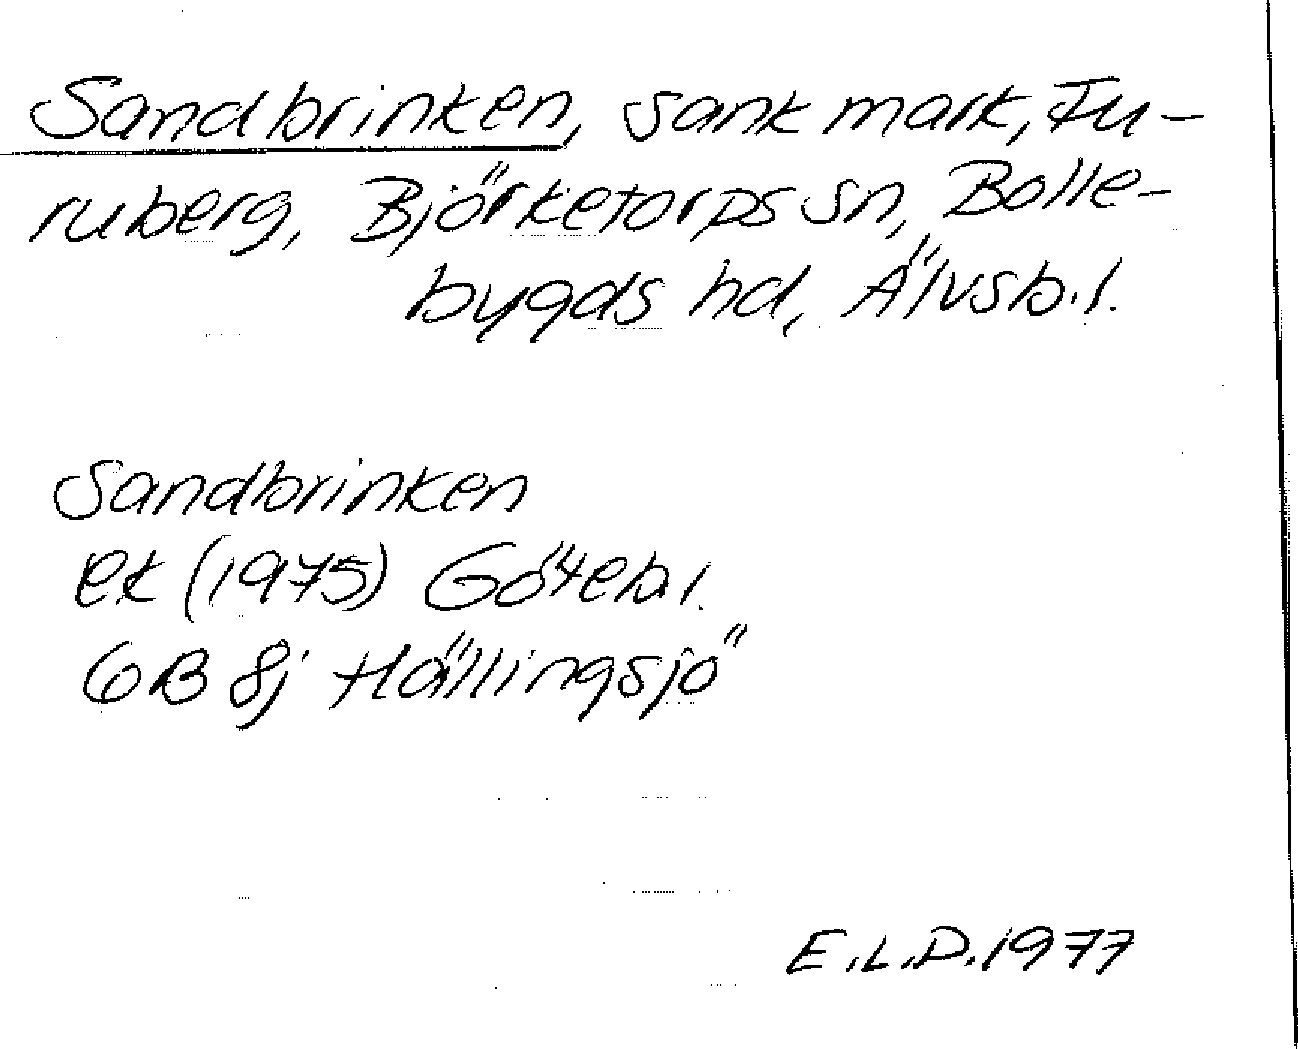 Sandbrinken, sank mark, Fu-
ruberg, Björketorps sn, Bolle-
bygds hd, Älvsb.l.
Sandbrinken
ek (1975) Göteb.l.
6B 8j Hällingsjö
E.L.D. 1977